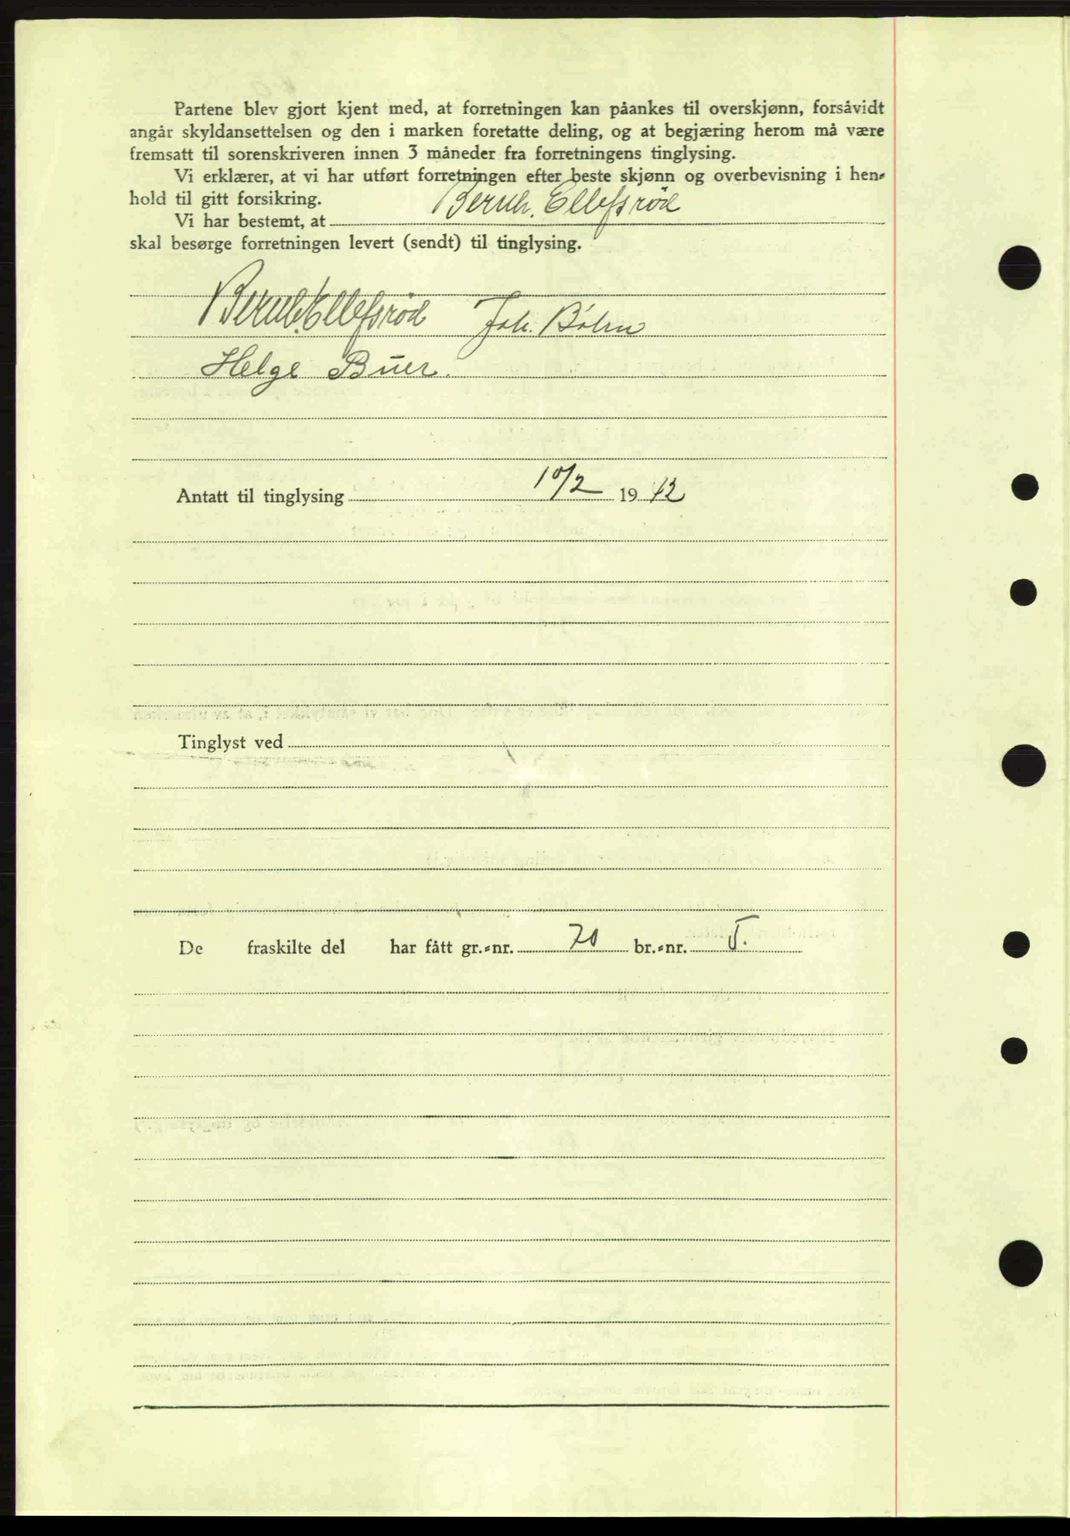 Partene blev gjort kjent med, at forretningen kan påankes til overskjønn, forsåvidt
angår skyldansettelsen og den i marken foretatte deling, og at begjæring herom må være
fremsatt til sorenskriveren innen 3 måneder fra forretningens tinglysing.
Vi erklærer, at vi har utført forretningen efter beste skjønn og overbevisning i hen-
hold til gitt forsikring.
Vi har bestemt, at Bernh. Ellefsrød
skal besørge forretningen levert (sendt) til tinglysing.
Bernh. Ellefsrød Joh. Bøhn
Helge Buer.
Antatt til tinglysing 10/2 1942
Tinglyst ved
De fraskilte del har fått gr.-nr. 70 br.-nr. 5.